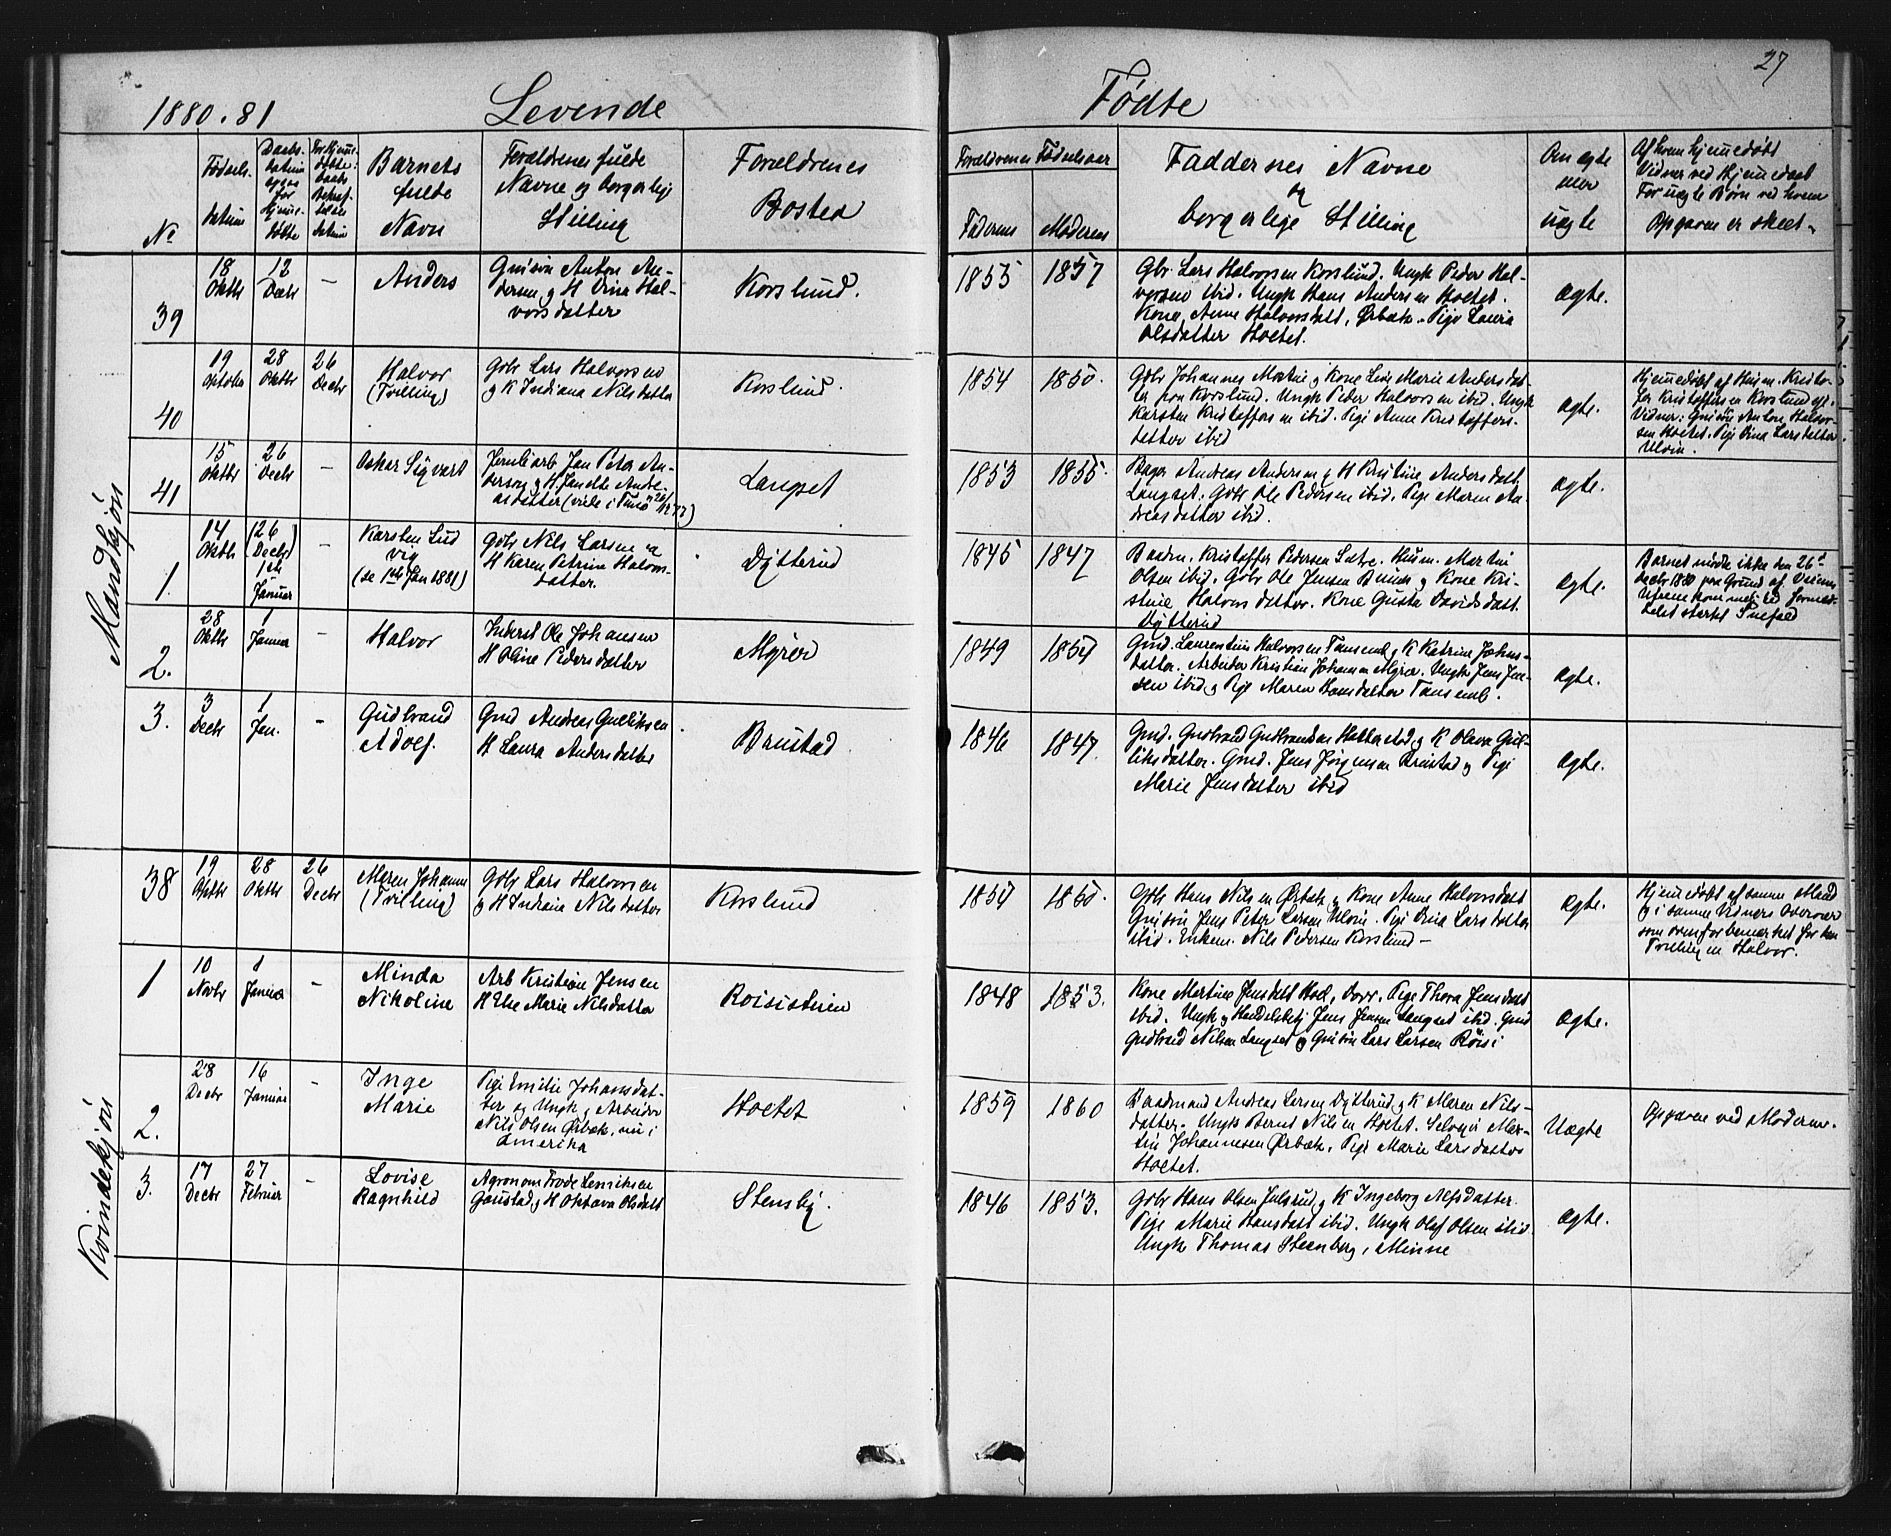 27
1880.81 Levende Fødte
No
Fødsels datum
Barnets fulde Navn
Forældrenes fulde Navne og borgerlige Stilling
Forældrenes Bosted
Forældrenes Fødselsaar
Faderens Moderens
Faddernes Navne og borgerlige Stilling
Om ægte eller uægte
Af hvem hjemmedøbt
Vidner ved Hjemmedaab
For uægte Børn ved hvem
Opgaven er skeet
Mandkjøn
39
18 Oktbr
12 Decbr
-
Anders
Gmisøn Anton An-
dersen og H Dina Hal-
vorsdatter
Korslund.
1855
1857
Gbr. Lars Halvorsen Korslund. Ungk Peder Hal-
vorsen ibid. Ungk Hans Andersen Hoctet.
Kone Anne Halvorsdatt, Ørbæk. Pige Laura
Olsdatter Hoctet.
Ægte.
40
19 Oktober
28 Oktbr
26 Decbr
Halvor
(Tvilling)
Gbr Lars Halvorsen
og K Indiana Nilsdatter
Korslund.
1854
1850.
Gbr Johannes Mostue og Kone Lise Marie Andersdat-
ter paa Korslund. Ungk Peder Halvorsen ibid. Ungk
Karsten Kristoffersen ibid. Pige Anne Kristoffers-
datter ibid
Ægte.
Hjemmedøbt af Husm. Kristo-
fer Kristoffersen Korslund
Vidner: Anton Halvor-
sen Hoctet. Pige Dina Larsdatter
Ulvin.
41
15 Oktbr
26 Decbr
-
Oskar Sigvart
Jernbarb Jan Peter An-
dersen og H. Janette Andre-
asdatter
Langset
1853
1855.
Bager Andreas Andersen og H Kristine Andersdatt
Langset. Gbr Ole Pedersen ibid. Pige Maren An-
dreasdatter ibid.
Ægte.
1.
14 Oktbr
(26 Decbr)
1ste Januar
-
Karsten Lud
vig
(se 1ste Jan 1881)
Gbr Nils Larsen og
H Karen Petrine Halvors-
datter.
Dytterud
1845
1847
Baadm. Kristoffer Pedersen Sætre. Husm. Martin
Olsen ibid. Gbr Ole Jensen og Kone Kri-
stine Halvorsdatter. Kone Gusta Davidsdatt.
Dytterud
Ægte.
Barnet mødte ikke den 26de
Decbr 1880 paa Grund af
stærkt Snefald
2.
28 Oktbr
1 Januar
-
Halvor
Inderst Ole Johansen
H Oline Pedersdatter
Myrer
1849
1854
Gmd. Laurentius Halvorsen Tansemb og K Katrine Johans-
datter. Arbeider Kristian Johansen Myrer. Ungk Jens Jen-
sen ibid og Pige Maren Hansdatter Tansemb.
Ægte.
3.
3 Decbr
1 Jan.
-
Gudbrand
Adolf.
Gmd Andreas Gulliksen
H Laura Andersdatter
Brustad
1846
1847.
Gmd. Gudbrand Gudbrandsen og K Olava Gul-
liksdatter. Gmd. Jens Jørgensen Brustad og Pige
Marie Jensdatter ibid
Ægte.
Kvindekjøn
38
19 Oktbr
28 Oktbr
26 Decbr
Maren Johanne
(Tvilling)
Gbr Lars Halvorsen
og H Indiana Nilsdatter
Korslund
1854
1850.
Gbr Hans Nilsen Ørbæk og Kone Anne Halvorsdatt
Gmisøn Jens Peter Larsen Ulvin. Pige Dina Larsdatter
ibid. Enkem. Nils Pedersen Korslund -
Ægte.
Hjemmedøbt af samme Mand
og i samme Vidners Overvær
som ovenfor bemærket for den
Tvilling en Halvor.
1
10 Novbr
1 Januar
-
Minda
Nikoline
Arb Kristian Jensen
H Else Marie Nilsdatter
Roisisteien
1848
1853.
Kone Martine Jensdatt Hoel, Dorr. Pige Thora Jensdatt
ibid. Ungk og Handelsbetj Jens Jensen Langset ibid. Gmd
Gudbrand Nilsen Langset og Gmisøn Lars Larsen Röisi
Ægte.
2.
28 Decbr
16 Januar
-
Inge
Marie
Pige Emilie Johansdat-
ter og Ungk og Arbeider
Nils Olsen Ørbæk, nu i
Amerika
Hoctet
1859
1860
Baadmand Andreas Larsen Dytterud og K Maren Nils-
datter. Ungk Bernt Nilsen Hoctet. Selveier Mar-
tin Johannesen Ørbæk. Pige Marie Larsdatter
Hoctet.
Uægte
Opgaven ved Moderen.
3.
17 Decbr
27 Februar
-
Lovise
Ragnhild
Agronom Frode Lemiksen
Gaustad og H Oktava Olsdatt
Stensby.
1846
1853.
Gbr Hans Olsen Julsrud og K Ingeborg Alfsdatter.
Pige Marie Hansdatt ibid. Ungk Olaf Olsen ibid.
Ungk Thomas Steenberg, Minne
Ægte.